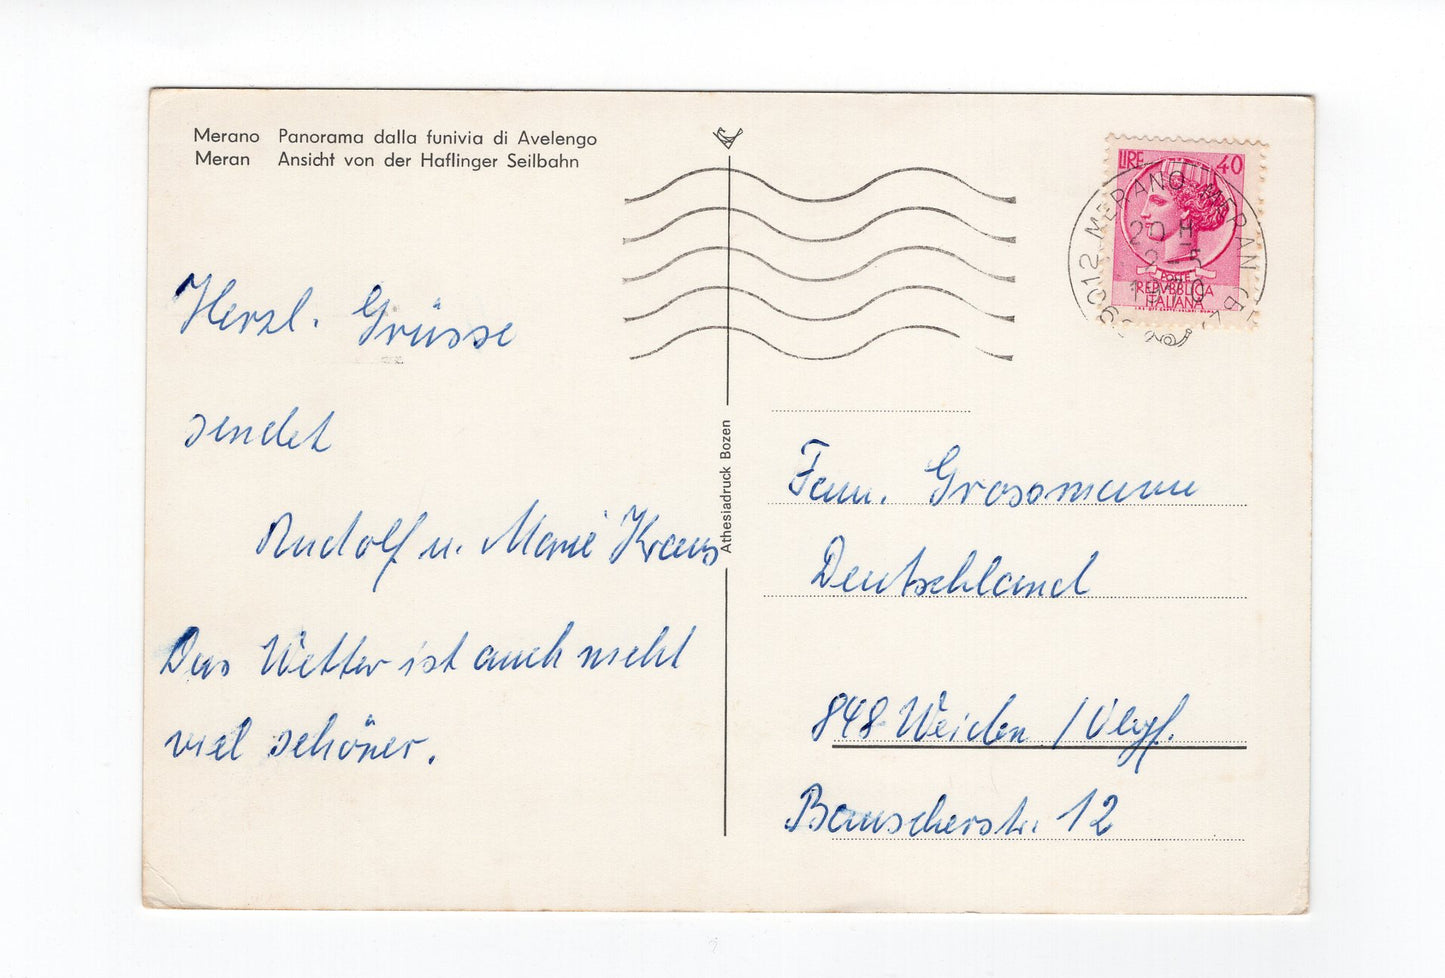 Merano Panorama dalla funivia di Avelengo
Meran Ansicht von der Haflinger Seilbahn
Herzl. Grüsse
sendet
Rudolf u. Marie Kraus
Das Wetter ist auch nicht
viel schöner.
Athesiadruck Bozen
LIRE 40
POSTE
REPVBBLICA
ITALIANA
39012 MERANO MERAN (BZ)
20 H
2-5
Fam. Grossmann
Deutschland
848 Weiden / Obpf.
Bauscherstr. 12